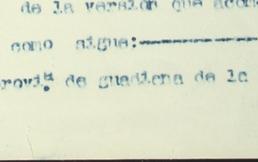 de la versión que acom
como sigue:----------
rovi.ª de guadiana de la